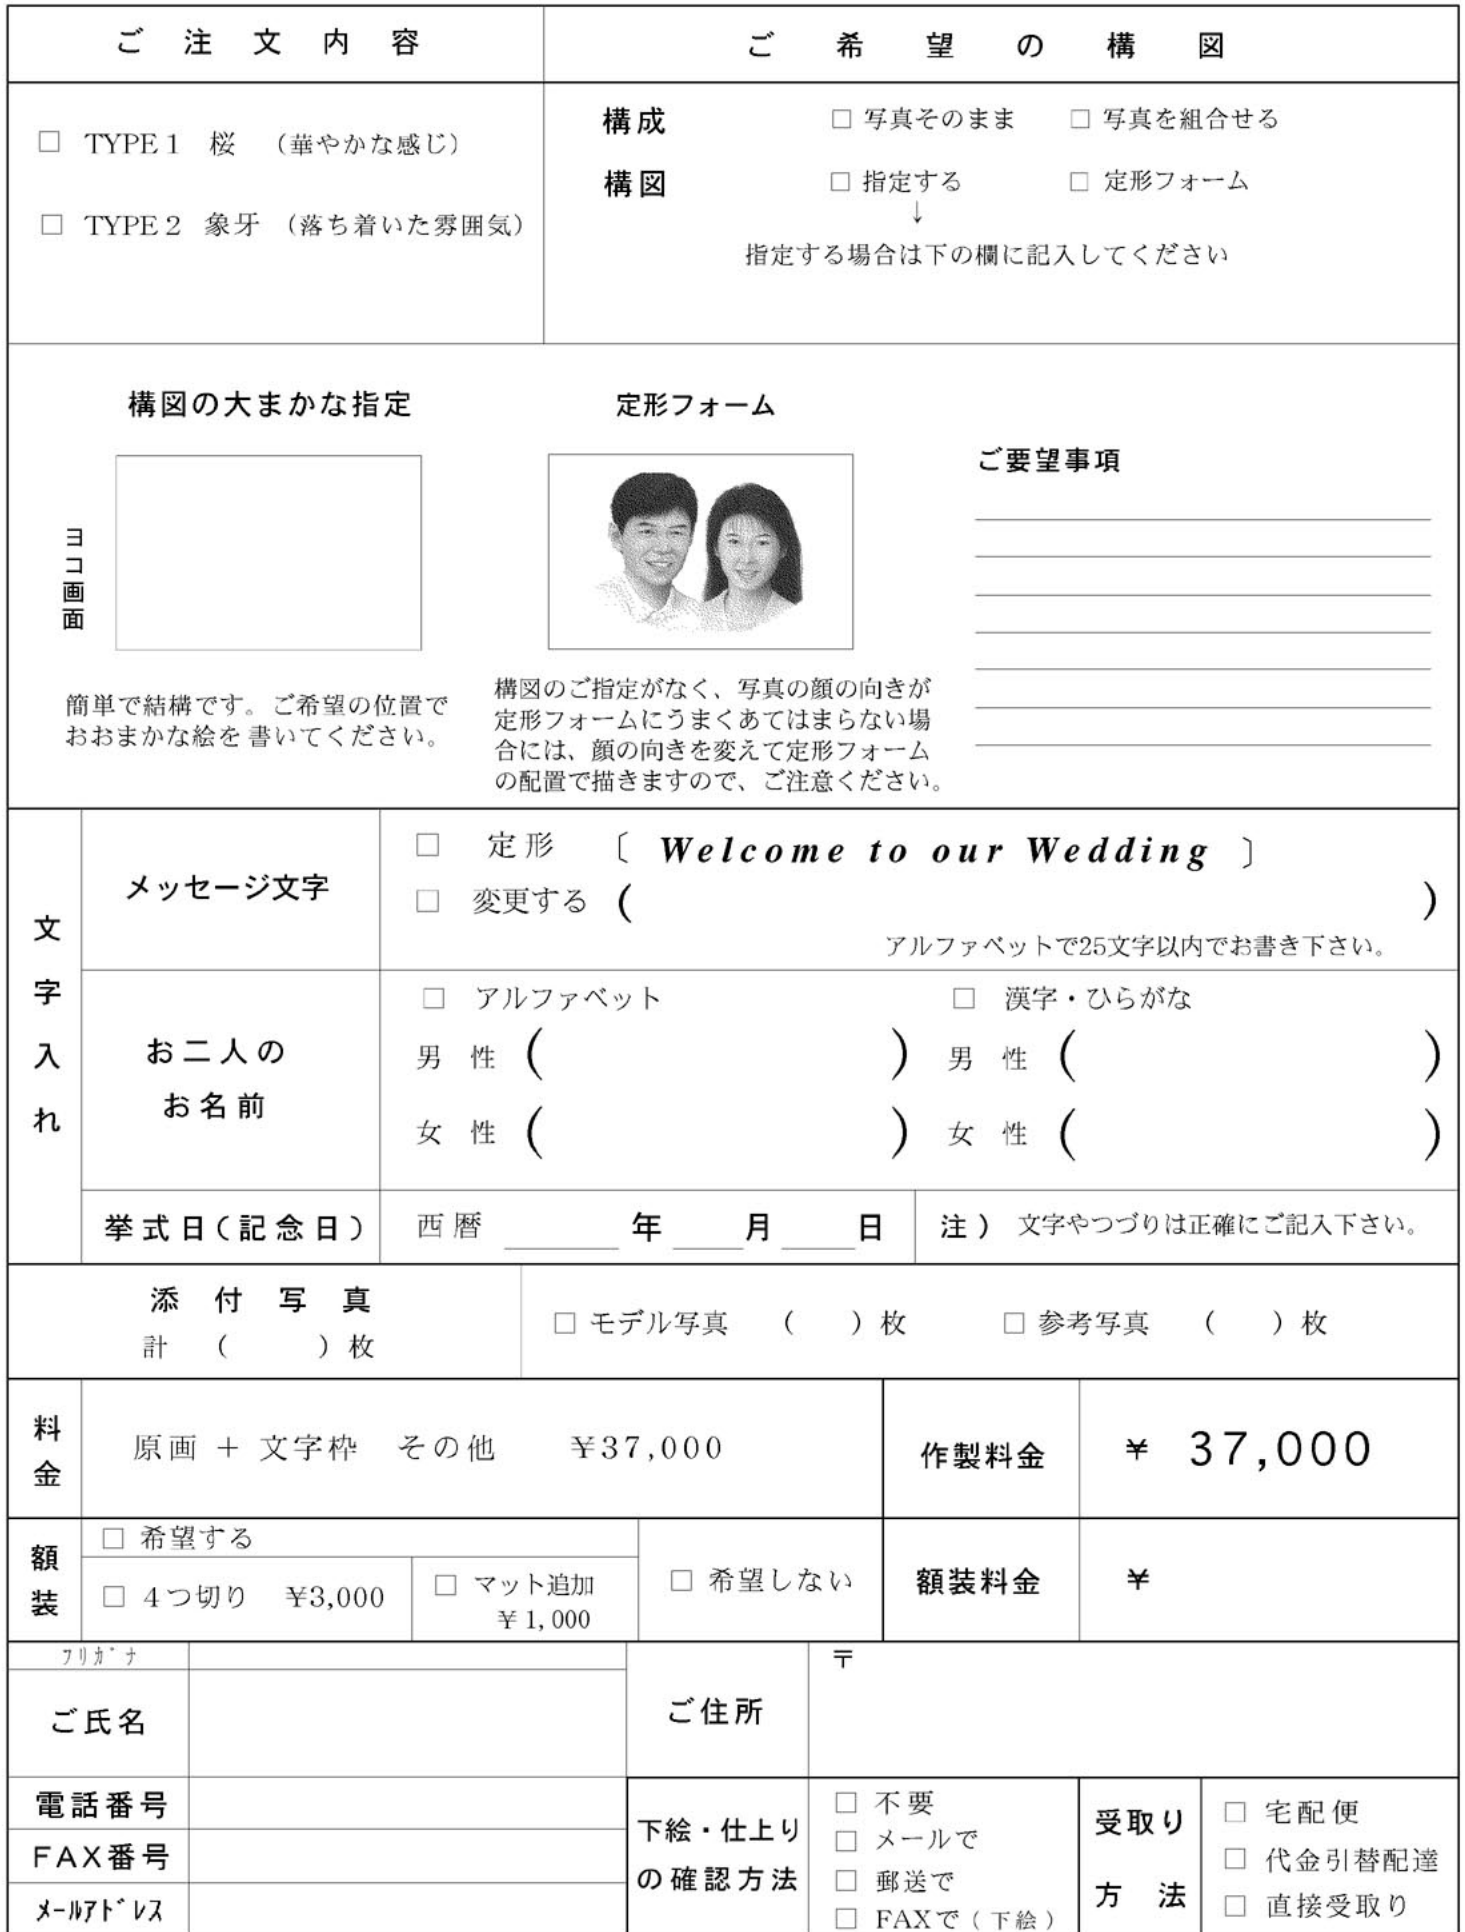 ご注文内容
ご希望の構図
□ TYPE１ 桜 （華やかな感じ）
□ TYPE２ 象牙 （落ち着いた雰囲気）
構成 □ 写真そのまま □ 写真を組合せる
構図 □ 指定する □ 定形フォーム
↓
指定する場合は下の欄に記入してください
構図の大まかな指定
ヨコ画面
簡単で結構です。ご希望の位置で
おおまかな絵を 書いてください。
定形フォーム
構図のご指定がなく、写真の顔の向きが
定形フォームにうまくあてはまらない場
合には、顔の向きを変えて定形フォーム
の配置で描きますので、ご注意ください。
ご要望事項
文字入れ
メッセージ文字
□ 定形 〔 Welcome to our Wedding 〕
□ 変更する ( )
アルファベットで25文字以内でお書き下さい。
お二人の
お名前
□ アルファベット □ 漢字・ひらがな
男性 ( ) 男性 ( )
女性 ( ) 女性 ( )
挙式日(記念日) 西暦 年 月 日 注） 文字やつづりは正確にご記入下さい。
添付写真
計 （ ）枚
□ モデル写真 （ ）枚 □ 参考写真 （ ）枚
料金
原画 ＋ 文字枠 その他 ¥37,000
作製料金 ¥ 37,000
額装
□ 希望する
□ ４つ切り ¥3,000
□ マット追加
¥1,000
□ 希望しない
額装料金 ¥
ﾌﾘｶﾞﾅ
ご氏名
ご住所 〒
電話番号
FAX番号
ﾒｰﾙｱﾄﾞﾚｽ
下絵・仕上り
の確認方法
□ 不要
□ メールで
□ 郵送で
□ FAXで（下絵）
受取り
方法
□ 宅配便
□ 代金引替配達
□ 直接受取り